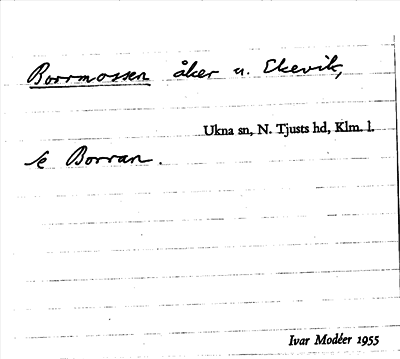 Borrmossen åker u. Ekevik,
Ukna sn, N. Tjusts hd, Klm. l.
se Borran.
Ivar Modéer 1955